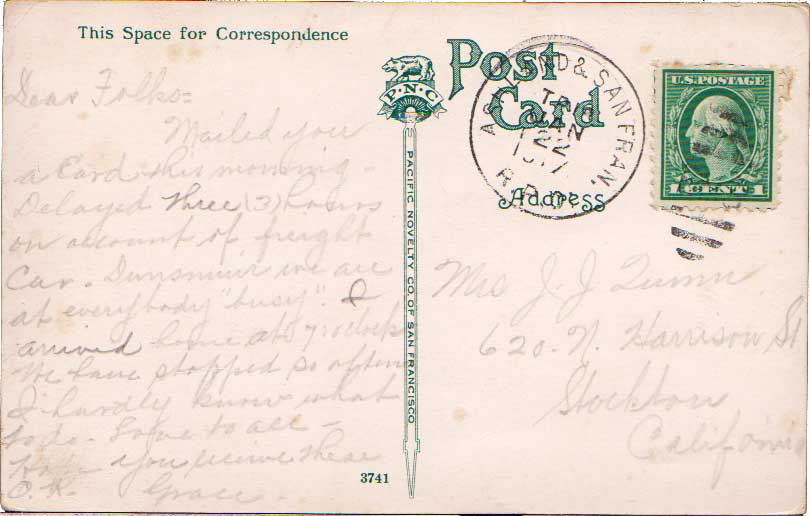 This Space for Correspondence
Dear Folks=
Mailed you
a Card this morning -
Delayed three (3) hours
on account of freight
Car. Dunsmuir we are
at everybody "busy". I
arrived home at 7 oclock
We have stopped so often
I hardly know what
to do - Love to all -
Hope you receive these
O.K. Grace -
P·N·C
PACIFIC NOVELTY CO. OF SAN FRANCISCO
3741
Post
Card
Address
ASHLAND & SAN FRAN.
JAN
22
R.P.O.
U.S. POSTAGE
1 CENT 1
Mrs J. J. Quinn
620. N. Harrison St
Stockton
California